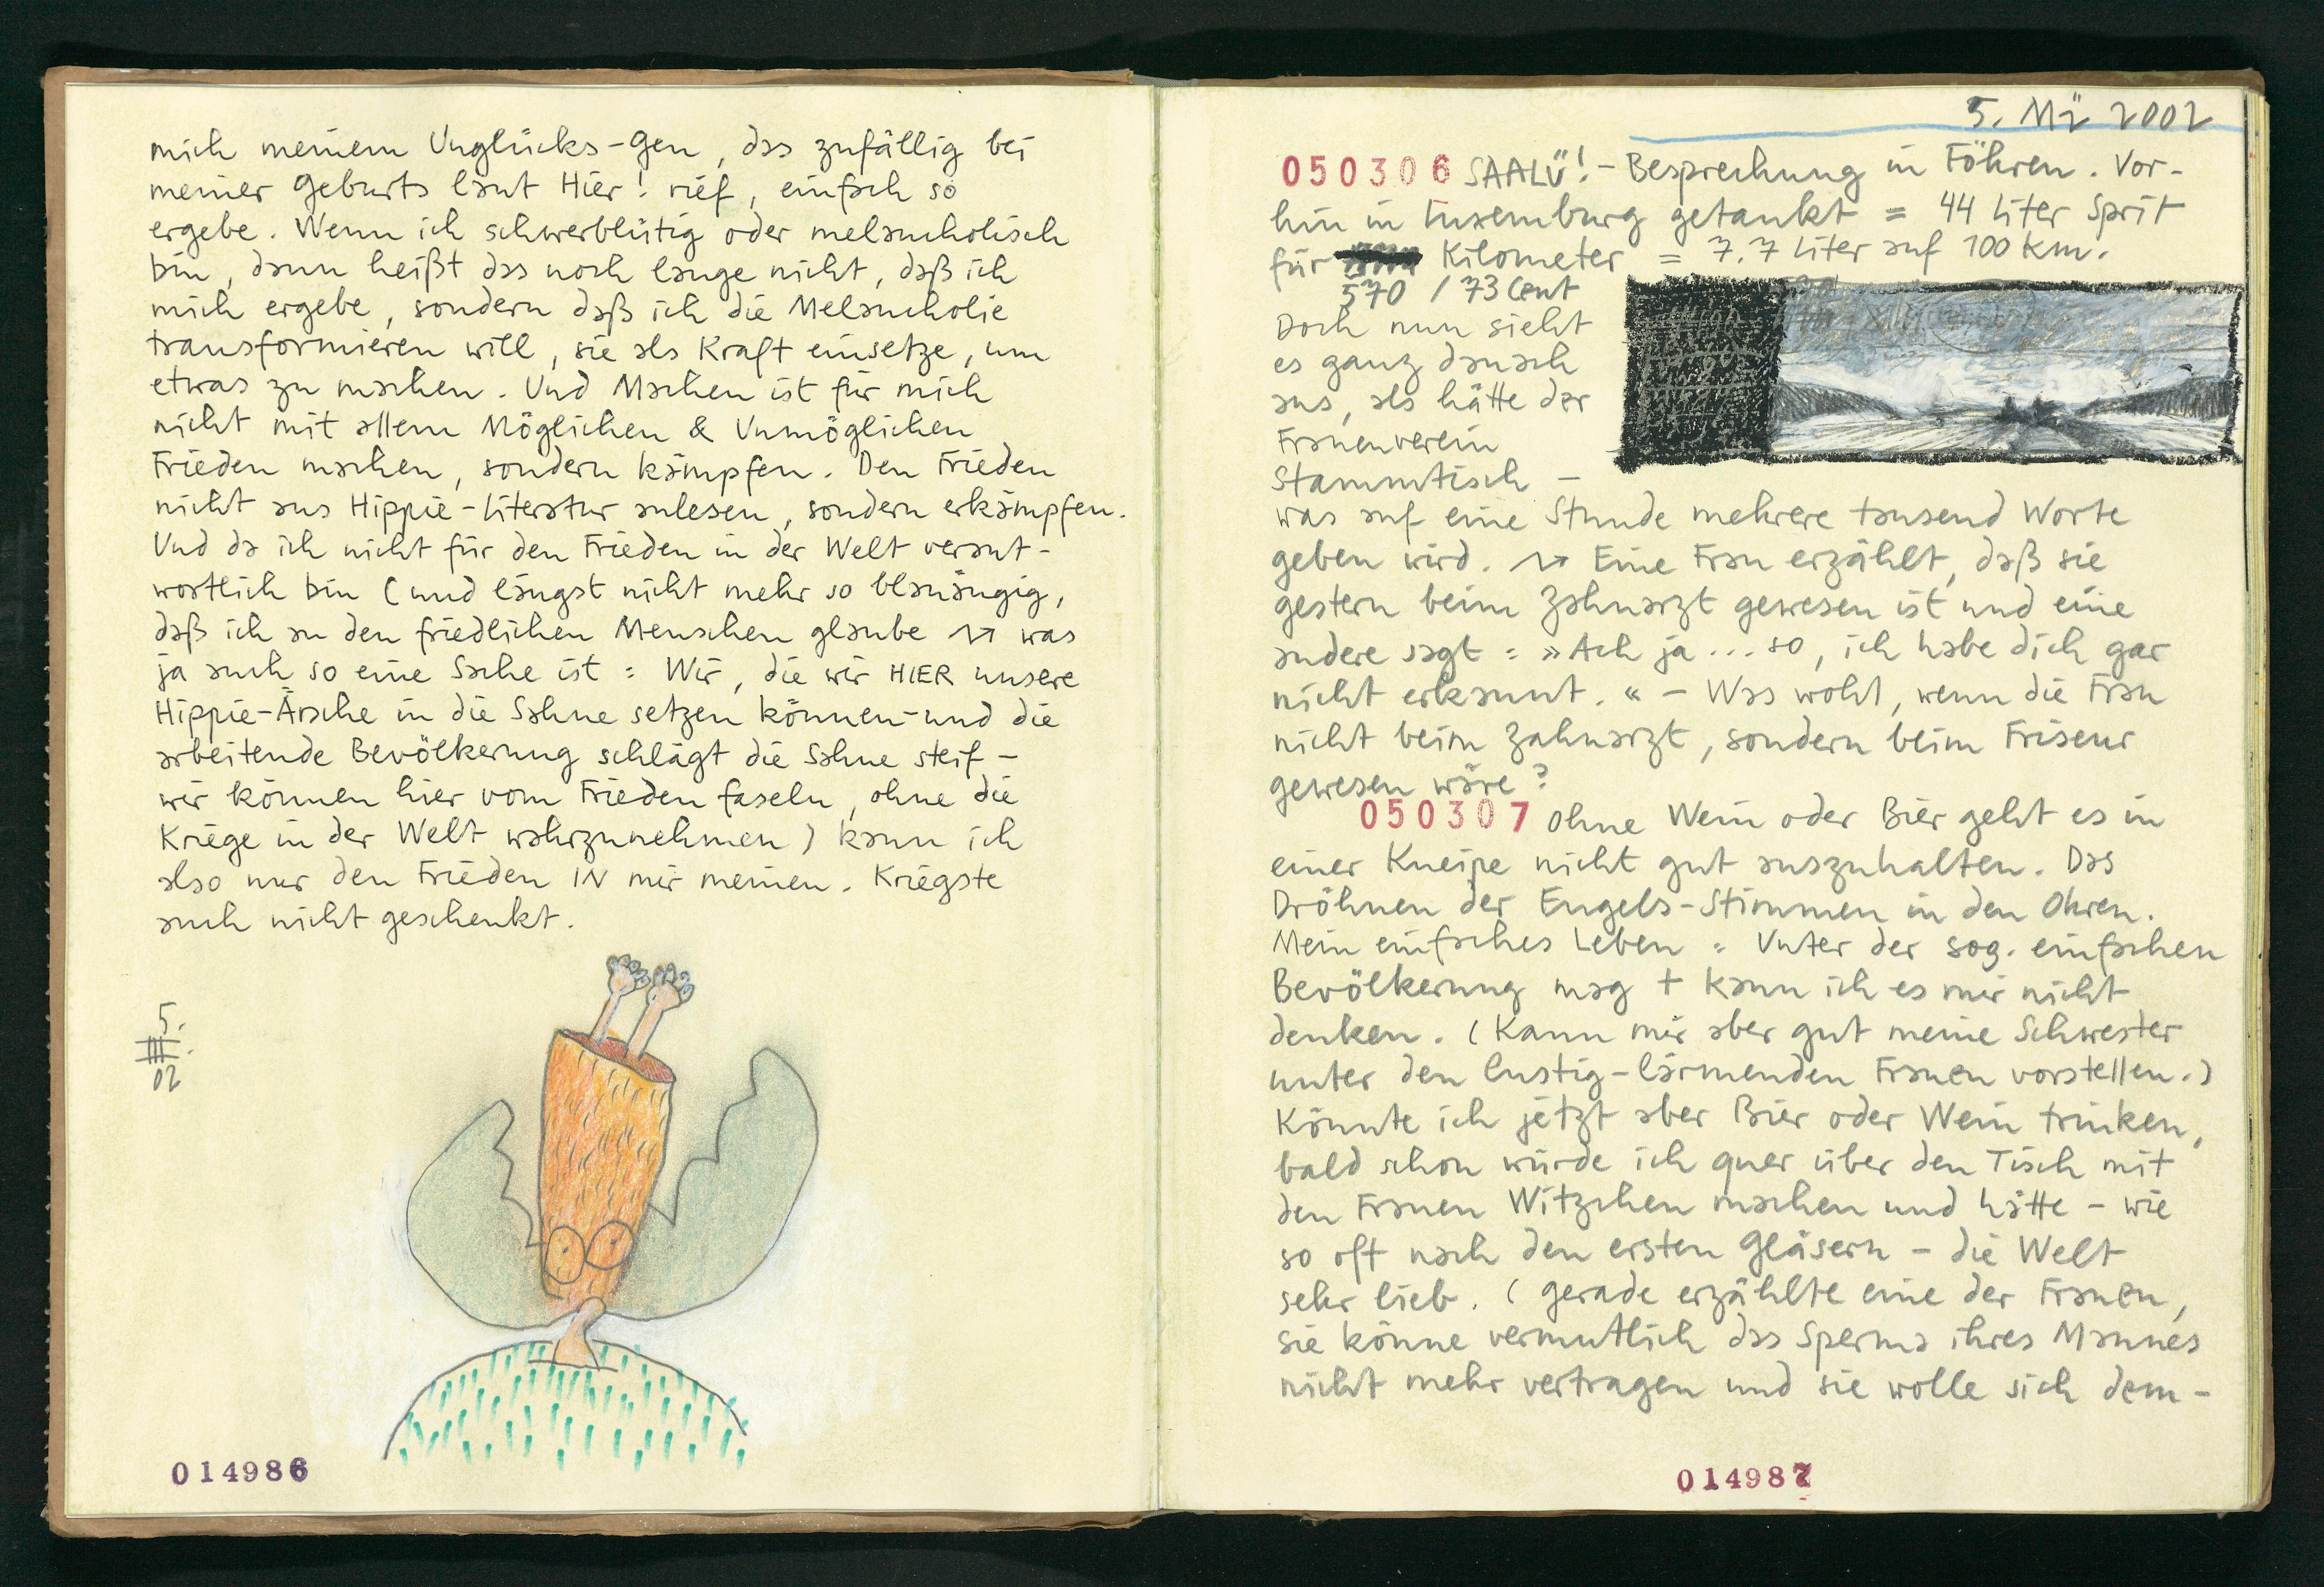 mich meinem Unglücks-Gen, das zufällig bei
meiner Geburts laut Hier! rief, einfach so
ergebe. Wenn ich schwerblütig oder melancholisch
bin, dann heißt das noch lange nicht, daß ich
mich ergebe, sondern daß ich die Melancholie
transformieren will, sie als Kraft einsetze, um
etwas zu machen. Und Machen ist für mich
nicht mit allem Möglichen & Unmöglichen
Frieden machen, sondern kämpfen. Den Frieden
nicht aus Hippie-Literatur anlesen, sondern erkämpfen.
Und da ich nicht für den Frieden in der Welt verant-
wortlich bin (und längst nicht mehr so blauäugig,
daß ich an den friedlichen Menschen glaube → was
ja auch so eine Sache ist: Wir, die wir HIER unsere
Hippie-Ärsche in die Sahne setzen können - und die
arbeitende Bevölkerung schlägt die Sahne steif -
wir können hier vom Frieden faseln, ohne die
Kriege in der Welt wahrzunehmen) kann ich
also nur den Frieden IN mir meinen. Kriegste
auch nicht geschenkt.
5.
III.
02
014986
5. Mä 2002
050306 SAALÜ! - Besprechung in Föhren. Vor-
hin in Luxemburg getankt = 44 Liter Sprit
für Kilometer = 7.7 Liter auf 100 km.
570 / 73 Cent
Doch nun sieht
es ganz danach
aus, als hätte der
Frauenverein
Stammtisch -
was auf eine Stunde mehrere tausend Worte
geben wird. → Eine Frau erzählt, daß sie
gestern beim Zahnarzt gewesen ist und eine
andere sagt: »Ach ja... so, ich habe dich gar
nicht erkannt.« - Was wohl, wenn die Frau
nicht beim Zahnarzt, sondern beim Friseur
gewesen wäre?
050307 Ohne Wein oder Bier geht es in
einer Kneipe nicht gut auszuhalten. Das
Dröhnen der Engels-Stimmen in den Ohren.
Mein einfaches Leben: Unter der sog. einfachen
Bevölkerung mag + kann ich es mir nicht
denken. (Kann mir aber gut meine Schwester
unter den lustig-lärmenden Frauen vorstellen.)
Könnte ich jetzt aber Bier oder Wein trinken,
bald schon würde ich quer über den Tisch mit
den Frauen Witzchen machen und hätte - wie
so oft nach den ersten Gläsern - die Welt
sehr lieb. (Gerade erzählte eine der Frauen,
sie könne vermutlich das Sperma ihres Mannes
nicht mehr vertragen und sie wolle sich dem-
014987